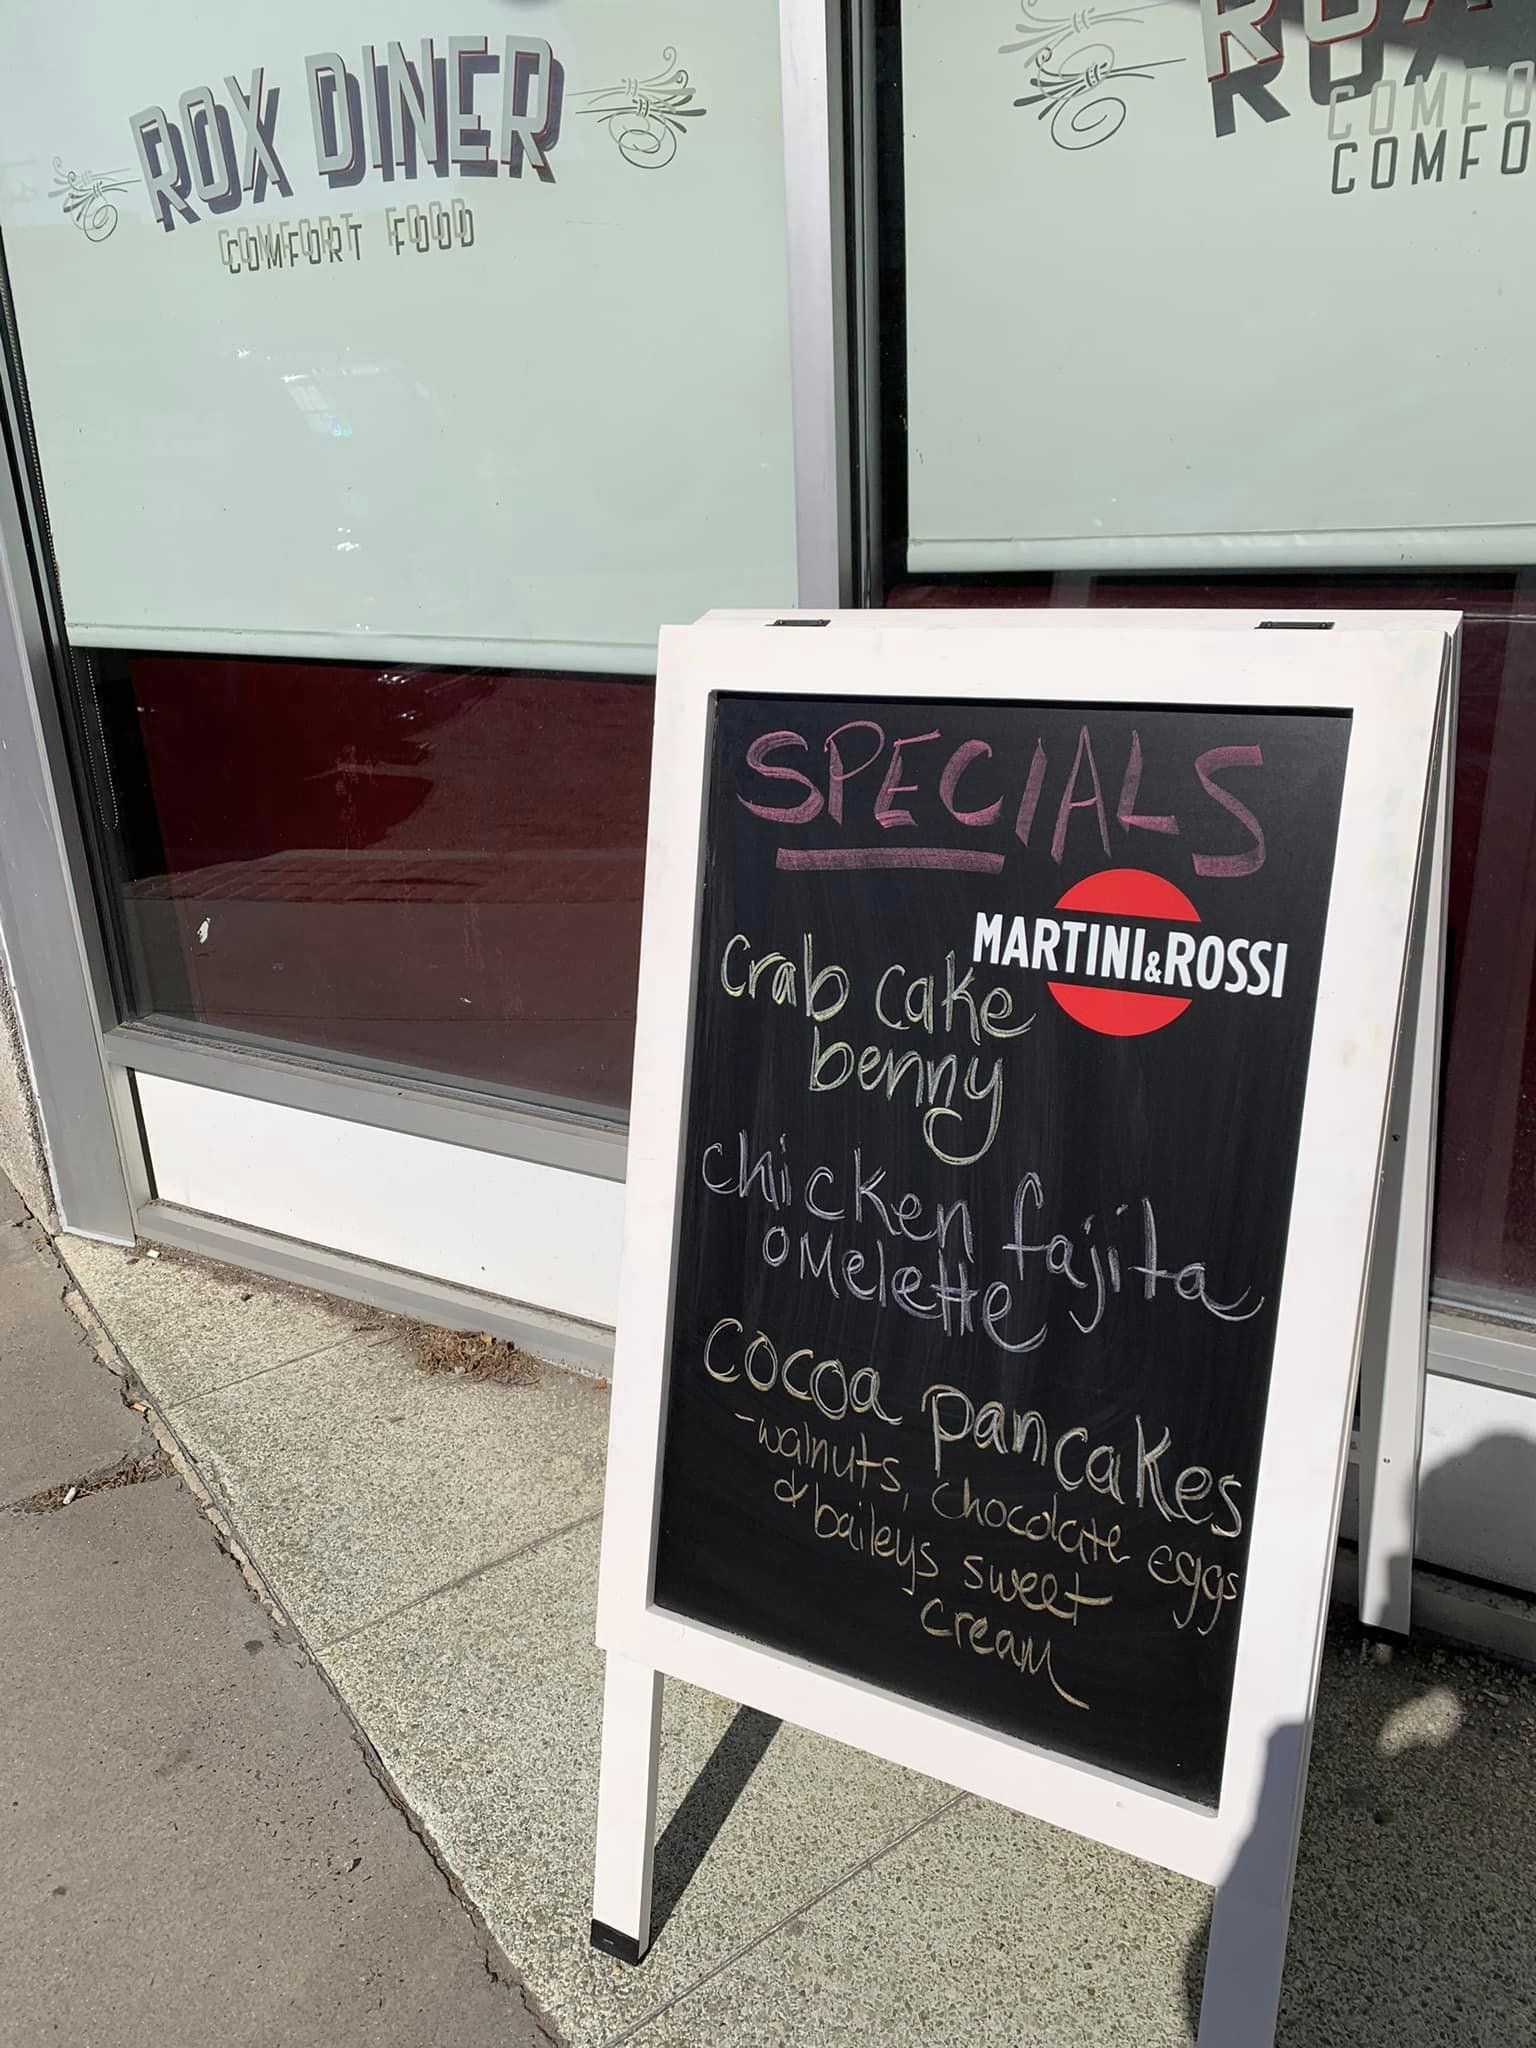 ROX DINER
COMFORT FOOD
ROX
COMFO
COMFO
SPECIALS
MARTINI & ROSSI
Crab Cake
benny
chicken fajita
omelette
Cocoa pancakes
-walnuts, chocolate eggs
& baileys sweet
cream